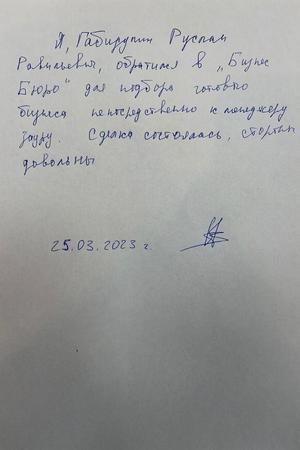 Я, Габирупин Руслан
Равильевич, обратился в „Бизнес
Бюро“ для подбора готового
бизнеса непосредственно к менеджеру
Зауру. Сделка состоялась, стороны
довольны
25.03.2023 г.